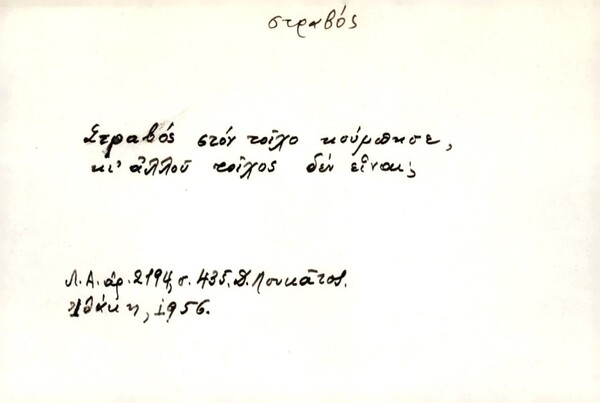 στραβός
Στραβός στόν τοῖχο κούμπησε,
κι' ἀλλοῦ τοῖχος δέν εἶναι;
Λ.Α. ἀρ. 2194, σ. 435, Δ. Λουκᾶτος.
Ἰθάκη, 1956.